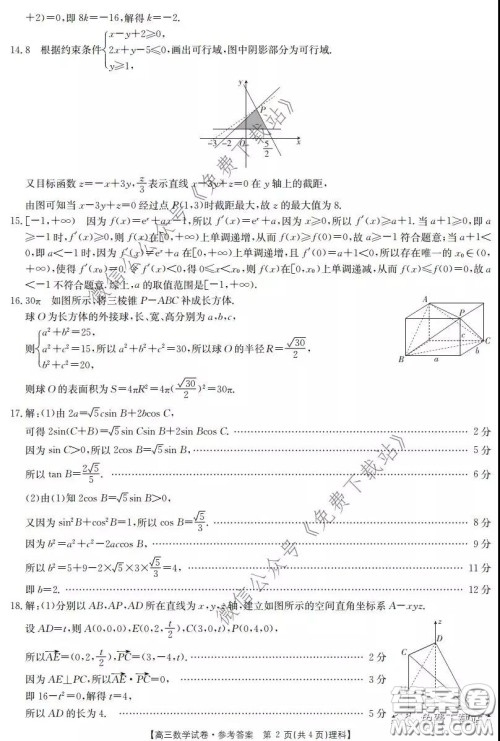 +2)=0,即 8k=-16,解得 k=-2.
14. 8 根据约束条件{x-y+2≥0, 2x+y-5≤0, y≥1, 画出可行域,图中阴影部分为可行域.
y
P
-3 -2 O 5/2 x
又目标函数 z=-x+3y, z/3 表示直线 x-3y+z=0 在 y 轴上的截距,
由图可知当 x-3y+z=0 经过点 P(1,3)时截距最大,故 z 的最大值为 8.
15. [-1,+∞) 因为 f(x)=eˣ+ax-1,所以 f′(x)=eˣ+a,因为 x≥0,所以 f′(x)≥a+1. 当 a+1≥0,即 a
≥-1 时,f′(x)≥0,则 f(x)在[0,+∞)上单调递增,从而 f(x)≥f(0)=0,故 a≥-1 符合题意;当 a+1<
0,即 a<-1 时,因为 f′(x)=eˣ+a 在[0,+∞)上单调递增,且 f′(0)=a+1<0,所以存在唯一的 x₀∈(0,
+∞),使得 f′(x₀)=0,令 f′(x)<0,得 0≤x<x₀,则 f(x)在[0,x₀)上单调递减,从而 f(x)≤f(0)=0,故 a<
-1 不符合题意. 综上,a 的取值范围是[-1,+∞).
16. 30π 如图所示,将三棱锥 P-ABC 补成长方体.
球 O 为长方体的外接球,长、宽、高分别为 a,b,c,
则{a²+b²=25, a²+c²=15,所以 a²+b²+c²=30,所以球 O 的半径 R=√30/2,
a²+c²=20,
则球 O 的表面积为 S=4πR²=4π(√30/2)²=30π.
A
P
c
B
C
a
b
17. 解:(1)由 2a=√5csin B+2bcos C,
可得 2sin(C+B)=√5sin Csin B+2sin Bcos C. 2 分
因为 sin C>0,所以 2cos B=√5sin B. 5 分
所以 tan B=2√5/5. 6 分
(2)由(1)知 2cos B=√5sin B>0,
又因为 sin²B+cos²B=1,所以 cos B=√5/3. 8 分
因为 b²=a²+c²-2accos B, 9 分
所以 b²=5+9-2×√5×3×√5/3=4, 11 分
即 b=2. 12 分
18. 解:(1)分别以 AB,AP,AD 所在直线为 x,y,z 轴,建立如图所示的空间直角坐标系 A-xyz.
设 AD=t,则 A(0,0,0),E(0,2,t/2),C(3,0,t),P(0,4,0),
所以AE=(0,2,t/2),PC=(3,-4,t). 2 分
因为 AE⊥PC,所以AE·PC=0, 3 分
即 16-t²=0,解得 t=4,
所以 AD 的长为 4. 5 分
z
D
C
【高三数学试卷·参考答案 第 2 页(共 4 页)理科】
微信公众号《免费下载站》
微信公众号《免费下载站》